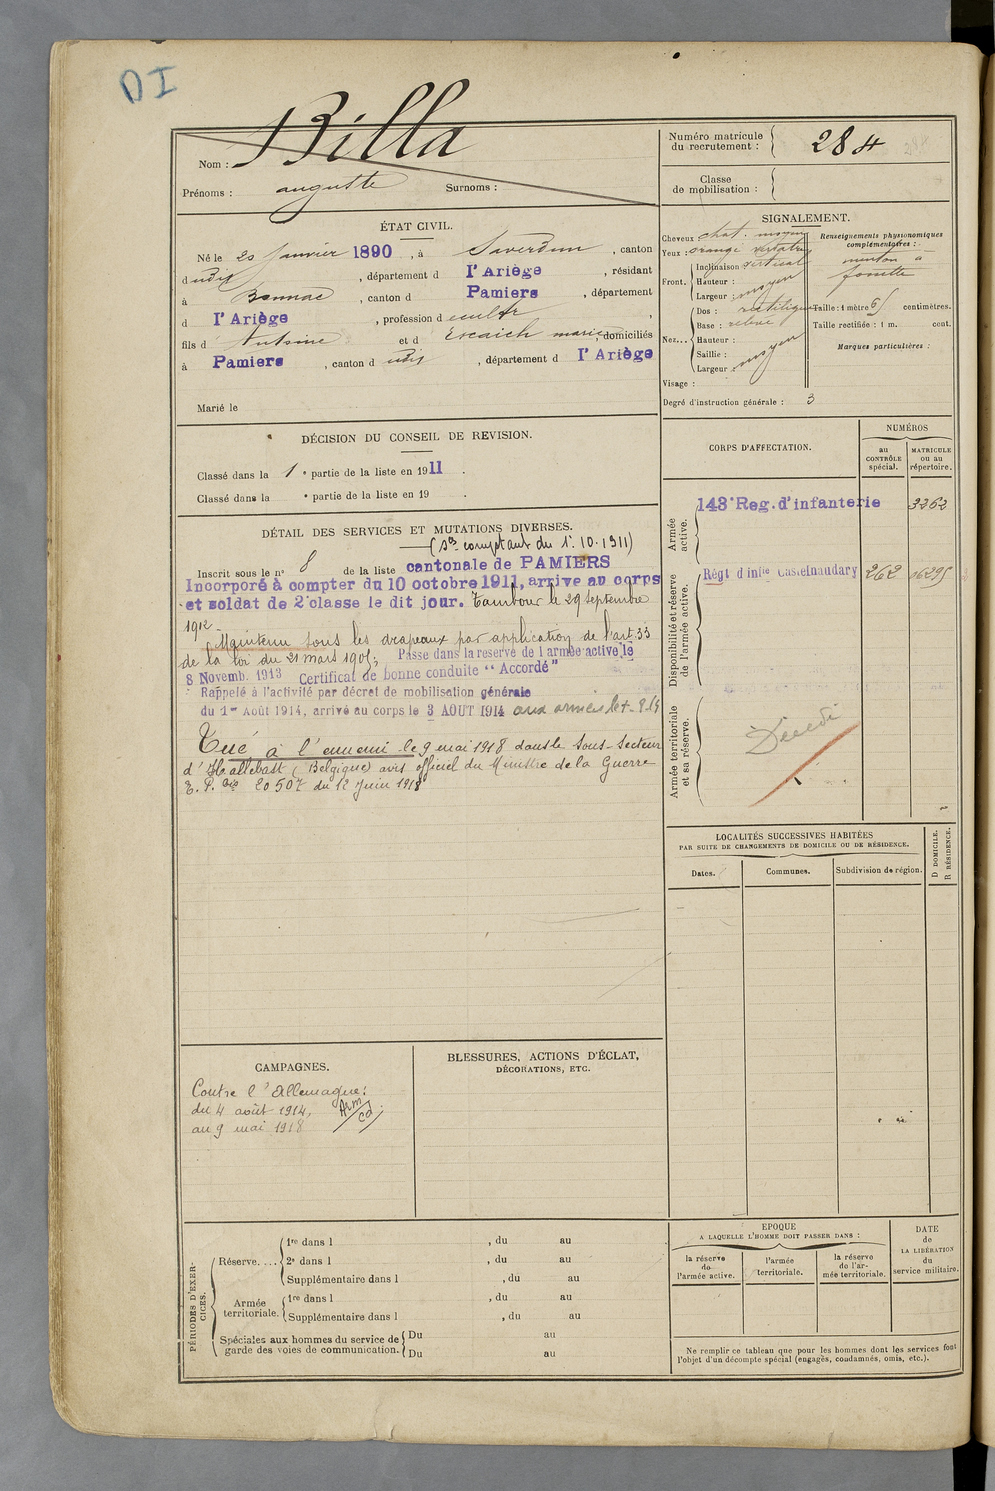 DI
Nom : Billa
Prénoms : auguste Surnoms :
Numéro matricule du recrutement : 284
Classe de mobilisation :
ÉTAT CIVIL.
Né le 20 Janvier 1890, à Saverdun, canton
dudit, département d l'Ariège, résidant
à Bonnac, canton d Pamiers, département
d l'Ariège, profession d cultr,
fils d Antoine et d Escaich marie, domiciliés
à Pamiers, canton d udit, département d l'Ariège
Marié le
SIGNALEMENT.
Cheveux chat. moyen
Yeux : orange verdatre
Front. Inclinaison vertical
Hauteur :
Largeur : moyen
Nez... Dos : rectiligne
Base : relevé
Hauteur :
Saillie :
Largeur : moyen
Visage :
Renseignements physionomiques complémentaires :
menton à
fossette
Taille : 1 mètre 65 centimètres.
Taille rectifiée : 1 m. cent.
Marques particulières :
Degré d'instruction générale : 3
DÉCISION DU CONSEIL DE REVISION.
Classé dans la 1e partie de la liste en 1911.
Classé dans la e partie de la liste en 19 .
DÉTAIL DES SERVICES ET MUTATIONS DIVERSES.
(Scs comptant du 1r. 10. 1911)
Inscrit sous le no 8 de la liste cantonale de PAMIERS
Incorporé à compter du 10 octobre 1911, arrive au corps
et soldat de 2e classe le dit jour. Tambour le 29 septembre
1912
Maintenu sous les drapeaux par application de l'art. 33
de la loi du 21 mars 1905; Passe dans la reserve de l armée active le
8 Novemb. 1913 Certificat de bonne conduite "Accordé"
Rappelé à l'activité par décret de mobilisation générale
du 1er Août 1914, arrivé au corps le 3 AOUT 1914 aux armées le 4-8-14
Tué à l'ennemi le 9 mai 1918 dans le Sous-Secteur
d'Hallebast (Belgique) avis officiel du Ministre de la Guerre
du 12 Juin 1918
CORPS D'AFFECTATION.
NUMÉROS
au CONTRÔLE spécial.
MATRICULE ou au répertoire.
Armée active.
143e Reg. d'infanterie 3262
Disponibilité et réserve de l'armée active.
Régt d'infie Castelnaudary 262 06295
Armée territoriale et sa réserve.
Décédé
LOCALITÉS SUCCESSIVES HABITÉES
PAR SUITE DE CHANGEMENTS DE DOMICILE OU DE RÉSIDENCE.
Dates. Communes. Subdivision de région. D DOMICILE. R RÉSIDENCE.
CAMPAGNES.
Contre l'Allemagne:
du 4 août 1914,
au 9 mai 1918
BLESSURES, ACTIONS D'ÉCLAT,
DÉCORATIONS, ETC.
PÉRIODES D'EXERCICES.
Réserve.... 1re dans l , du au
2e dans l , du au
Supplémentaire dans l , du au
Armée territoriale. 1re dans l , du au
Supplémentaire dans l , du au
Spéciales aux hommes du service de garde des voies de communication. Du au
Du au
EPOQUE
A LAQUELLE L'HOMME DOIT PASSER DANS :
la réserve de l'armée active.
l'armée territoriale.
la réserve de l'armée territoriale.
DATE
de
LA LIBÉRATION
du
service militaire.
Ne remplir ce tableau que pour les hommes dont les services font
l'objet d'un décompte spécial (engagés, condamnés, omis, etc.).